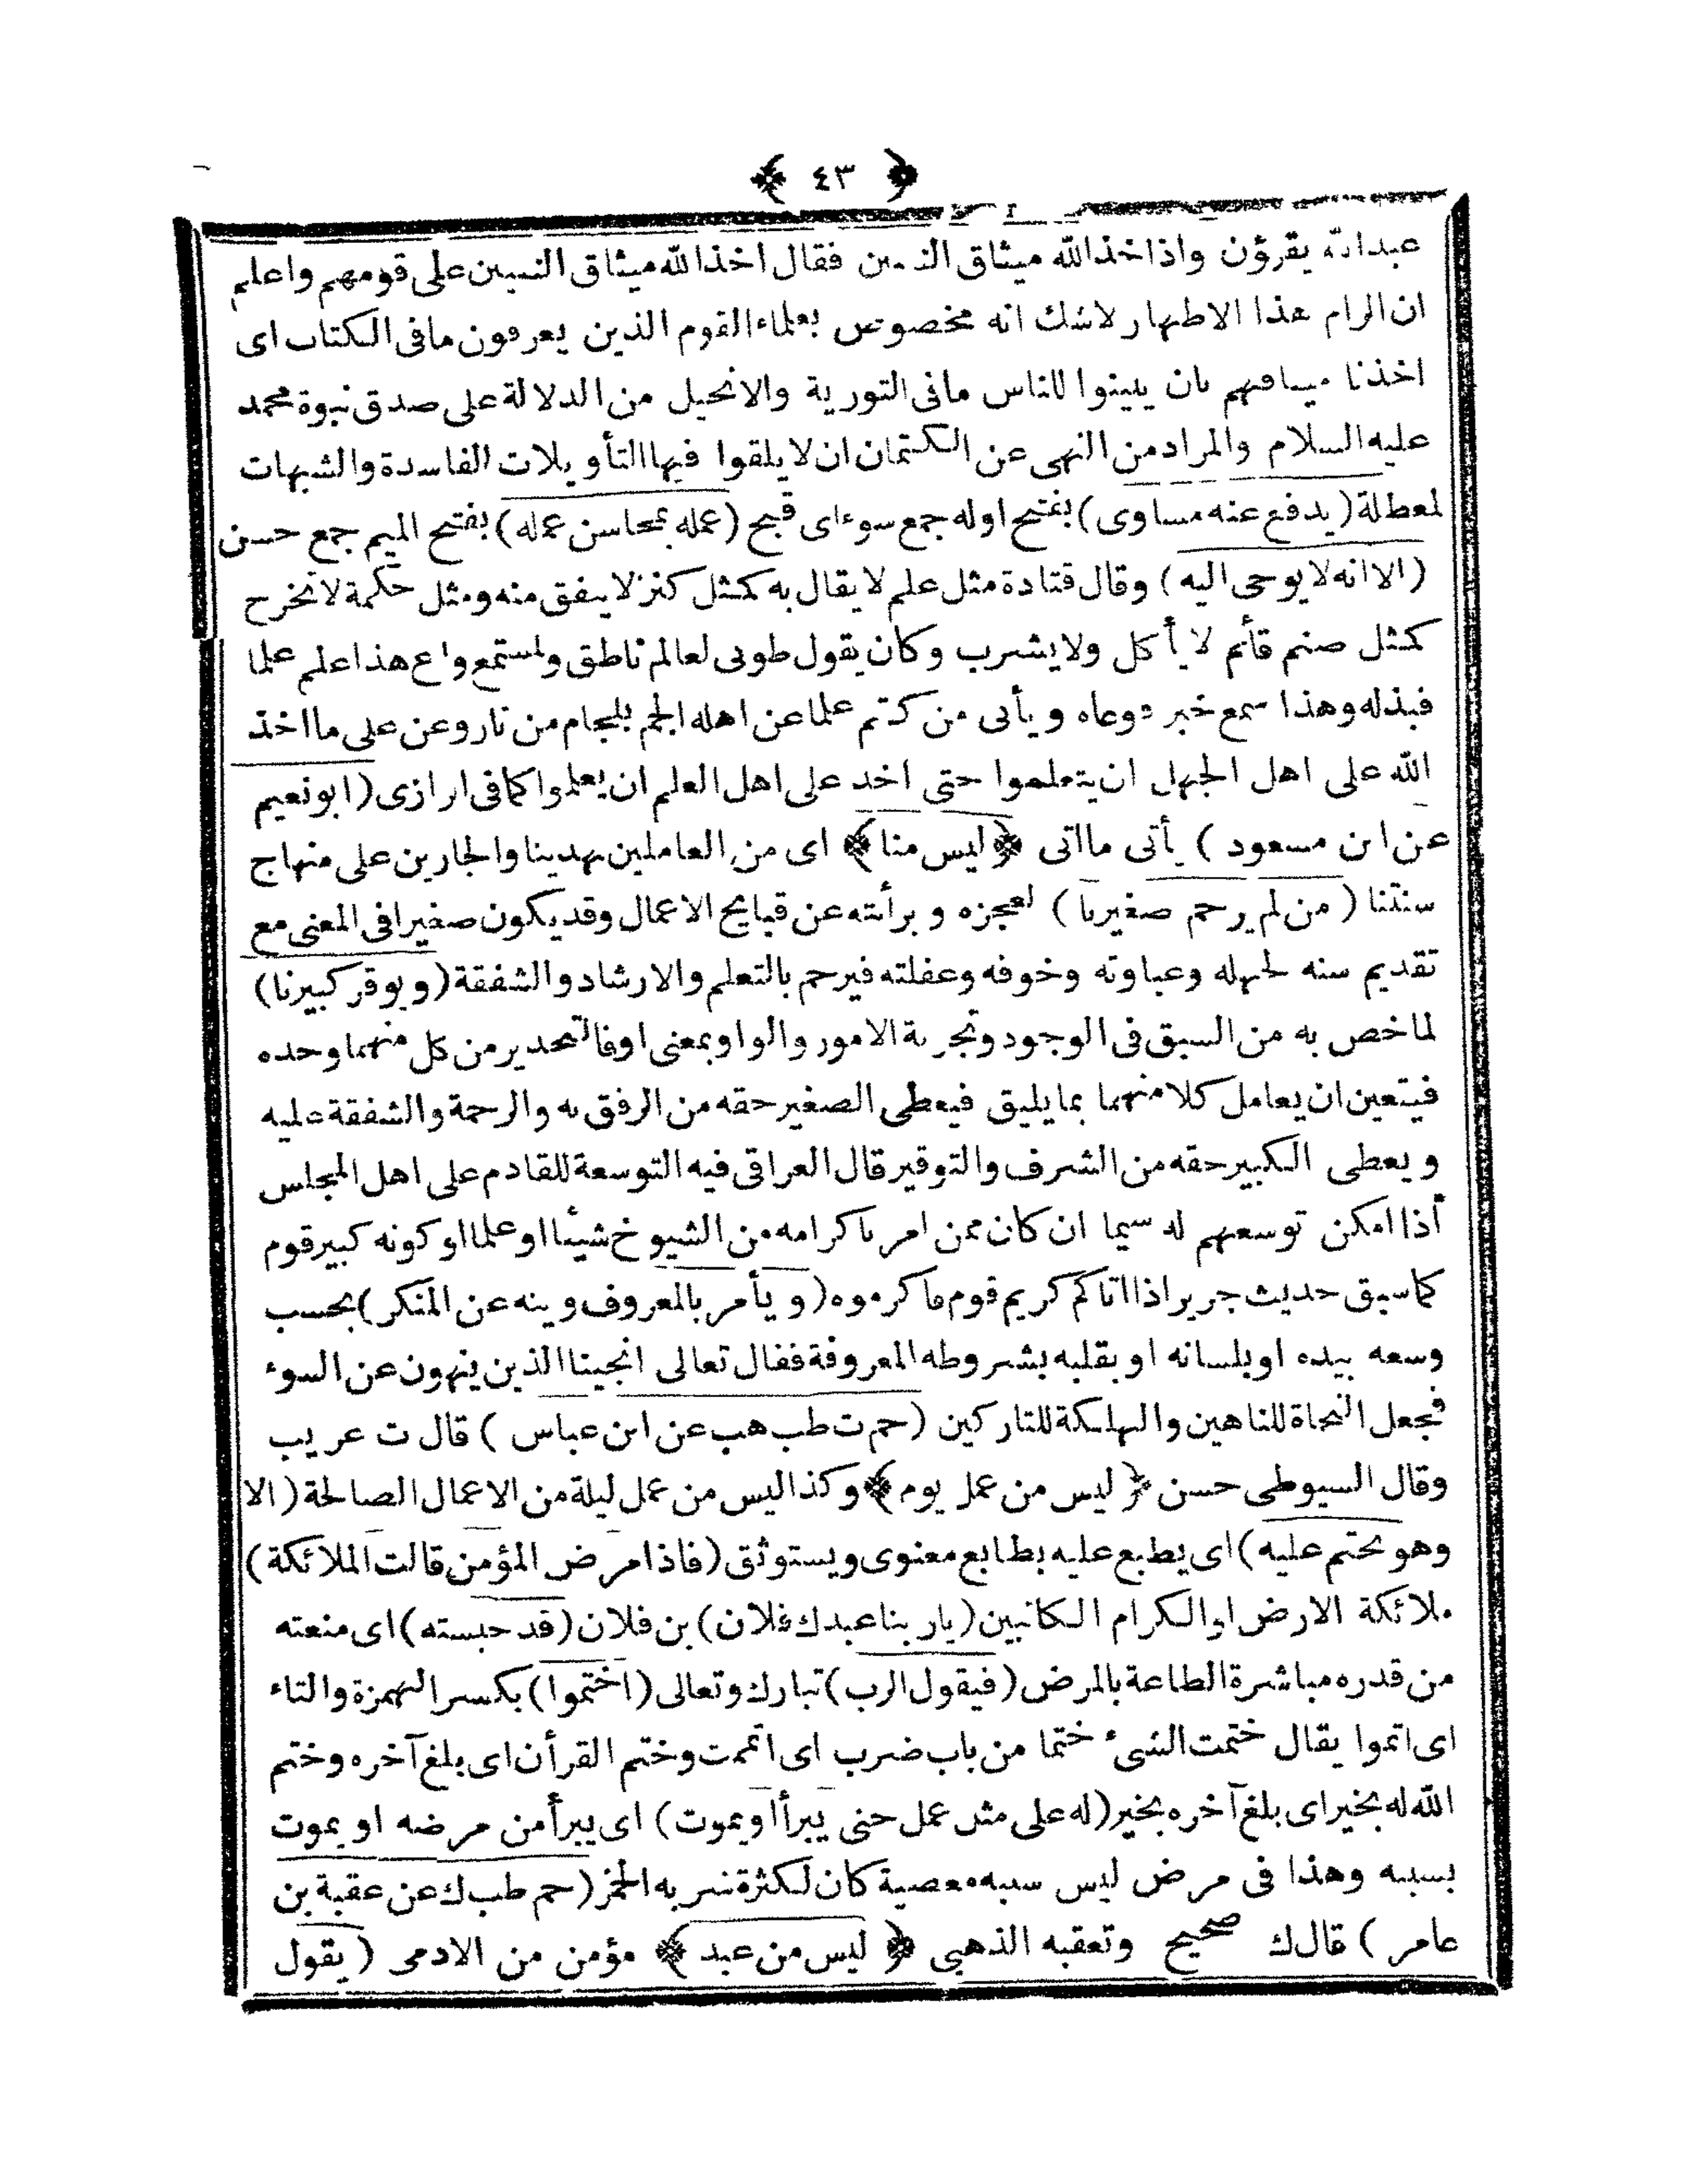 ﴿ ٤٣ ﴾
عبدالله يقرؤن واذ اخذ الله ميثاق النبيين فقال اخذ الله ميثاق النبيين على قومهم واعلم
ان الزام هذا الاظهار لاشك انه مخصوص بعلماء القوم الذين يعرفون مافى الكتاب اى
اخذنا ميثاقهم بان يبينوا للناس مافى التورية والانجيل من الدلالة على صدق نبوة محمد
عليه السلام والمراد من النهى عن الكتمان ان لا يلقوا فيها التأويلات الفاسدة والشبهات
لمعطلة (يدفع عنه مساوى) بفتح اوله جمع سوء اى قبح (عمله بمحاسن عمله) بفتح الميم جمع حسن
(الا انه لا يوحى اليه) وقال قتادة مثل علم لا يقال به كمثل كنز لا ينفق منه ومثل حكمة لا تخرج
كمثل صنم قائم لا يأكل ولا يشرب وكان يقول طوبى لعالم ناطق ولمستمع واع هذا علم علما
فبذله وهذا سمع خبر فوعاه ويأتى من كتم علما عن اهله الجم بلجام من نار وعن على ما اخذ
الله على اهل الجهل ان يتعلموا حتى اخذ على اهل العلم ان يعلموا كما فى ارازى (ابونعيم
عن ابن مسعود) يأتى مااتى ﴿ليس منا﴾ اى من العاملين بهدينا والجارين على منهاج
سنتنا (من لم يرحم صغيرنا) لعجزه وبرأته عن قبايح الاعمال وقد يكون صغيرا فى المعنى مع
تقديم سنه لجهله وغباوته وخوفه وغفلته فيرحم بالتعلم والارشاد والشفقة (ويوقر كبيرنا)
لما خص به من السبق فى الوجود وتجربة الامور والواو بمعنى او فالتحذير من كل منهما وحده
فيتعين ان يعامل كلا منهما بما يليق فيعطى الصغير حقه من الرفق به والرحمة والشفقة عليه
ويعطى الكبير حقه من الشرف والتوقير قال العراقى فيه التوسعة للقادم على اهل المجلس
أذا امكن توسعهم له سيما ان كان ممن امر باكرامه من الشيوخ شيئا او علما او كونه كبير قوم
كما سبق حديث جرير اذا اتاكم كريم قوم فاكرموه (ويأمر بالمعروف وينه عن المنكر) بحسب
وسعه بيده او بلسانه او بقلبه بشروطه المعروفة فقال تعالى انجينا الذين ينهون عن السوء
فجعل النجاة للناهين والهلكة للتاركين (حم ت طب هب عن ابن عباس) قال ت غريب
وقال السيوطى حسن ﴿ليس من عمل يوم﴾ وكذا ليس من عمل ليلة من الاعمال الصالحة (الا
وهو يختم عليه) اى يطبع عليه بطابع معنوى ويستوثق (فاذا مرض المؤمن قالت الملائكة)
ملائكة الارض او الكرام الكاتبين (ياربنا عبدك فلان) بن فلان (قد حبسته) اى منعته
من قدره مباشرة الطاعة بالمرض (فيقول الرب) تبارك وتعالى (اختموا) بكسر الهمزة والتاء
اى اتموا يقال ختمت الشىء ختما من باب ضرب اى اتممت وختم القرأن اى بلغ آخره وختم
الله له بخير اى بلغ آخره بخير (له على مثل عمل حتى يبرأ او يموت) اى يبرأ من مرضه او يموت
بسببه وهذا فى مرض ليس سببه معصية كان لكثرة شربه الخمر (حم طب ك عن عقبة بن
عامر) قال ك صحيح وتعقبه الذهبى ﴿ليس من عبد﴾ مؤمن من الادمى (يقول